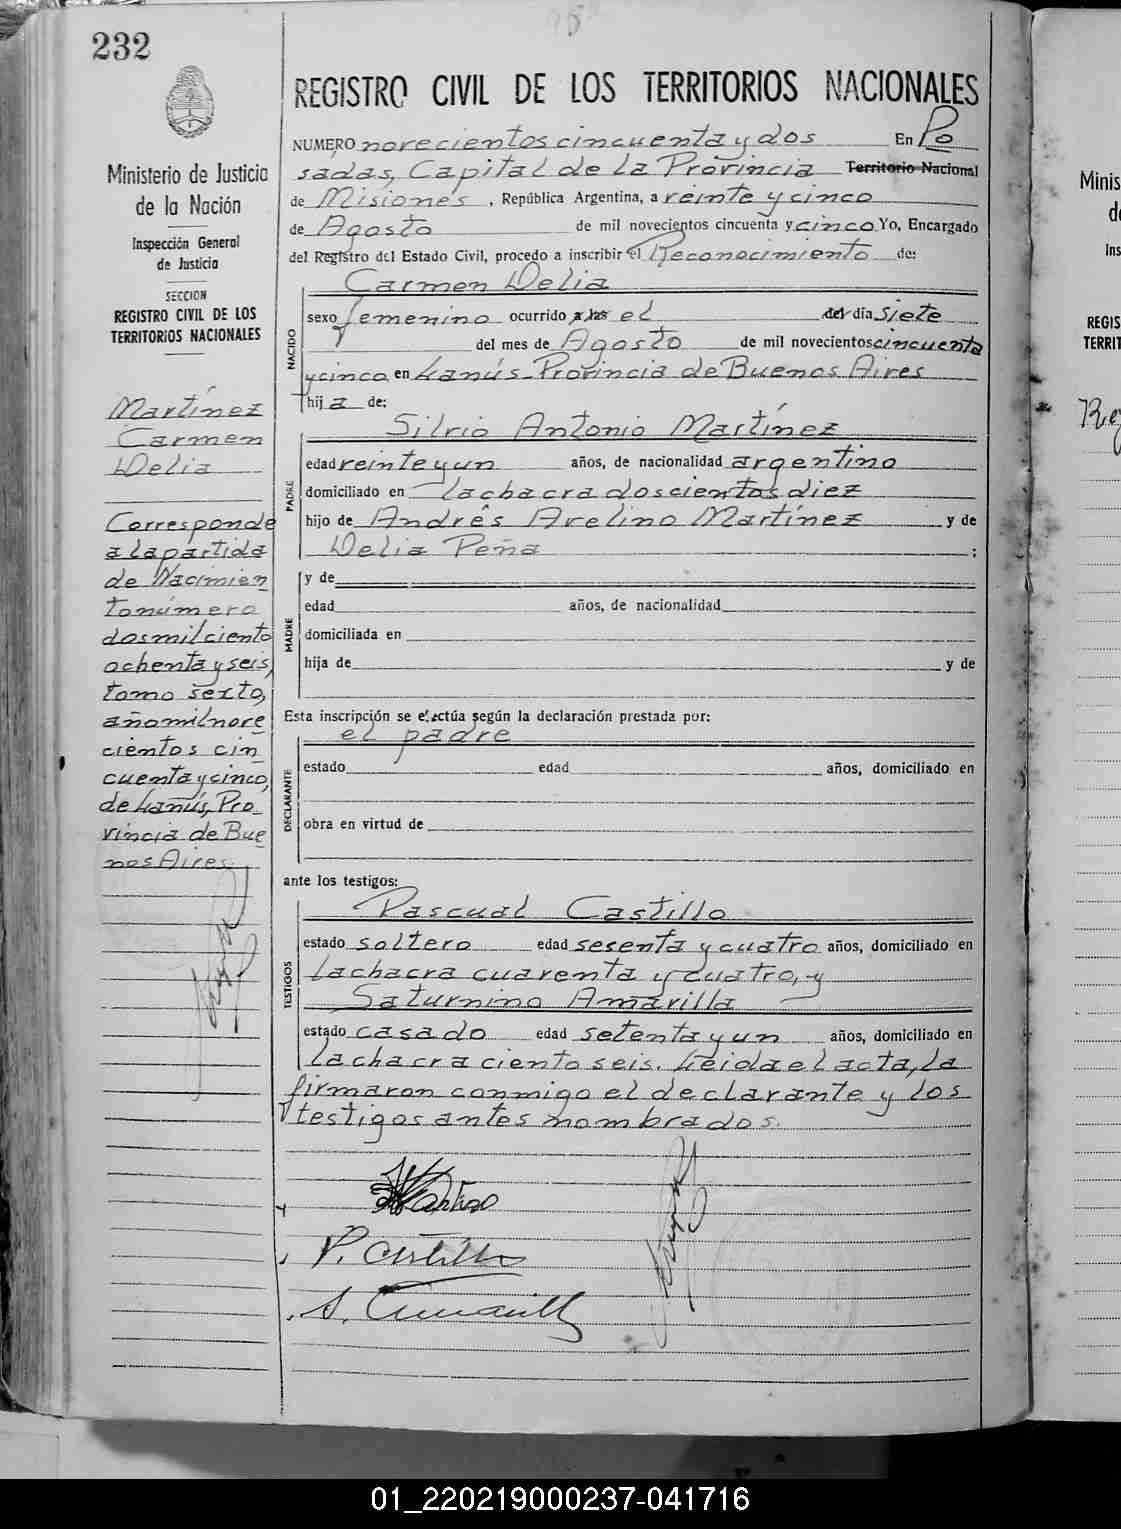 232
Ministerio de Justicia
de la Nación
Inspección General
de Justicia
SECCION
REGISTRO CIVIL DE LOS
TERRITORIOS NACIONALES
Martínez
Carmen
Delia
Corresponde
a la partida
de Nacimien
to número
dos mil ciento
ochenta y seis,
tomo sexto,
año mil nove
cientos cin
cuenta y cinco,
de Lanús, Pro_
vincia de Bue
nos Aires.
REGISTRO CIVIL DE LOS TERRITORIOS NACIONALES
NUMERO novecientos cincuenta y dos En Po
sadas, Capital de la Provincia Territorio Nacional
de Misiones, República Argentina, a veinte y cinco
de Agosto de mil novecientos cincuenta y cinco Yo, Encargado
del Registro del Estado Civil, procedo a inscribir el Reconocimiento de:
Carmen Delia
NACIDO
sexo femenino ocurrido a las el del día siete
del mes de Agosto de mil novecientos cincuenta
y cinco en Lanús - Provincia de Buenos Aires
hija de:
Silvio Antonio Martínez
PADRE
edad veinte y un años, de nacionalidad argentino
domiciliado en la chacra doscientos diez
hijo de Andrés Avelino Martínez y de
Delia Peña ;
MADRE
y de
edad años, de nacionalidad
domiciliada en
hija de y de
Esta inscripción se efectúa según la declaración prestada por:
el padre
DECLARANTE
estado edad años, domiciliado en
obra en virtud de
ante los testigos:
Pascual Castillo
TESTIGOS
estado soltero edad sesenta y cuatro años, domiciliado en
la chacra cuarenta y cuatro, y
Saturnino Amarilla
estado casado edad setenta y un años, domiciliado en
la chacra ciento seis. Leída el acta, la
firmaron conmigo el declarante y los
testigos antes nombrados.
P. Castillo
S. Amarilla
Minis
d
Ins
REGIS
TERRIT
01_220219000237-041716